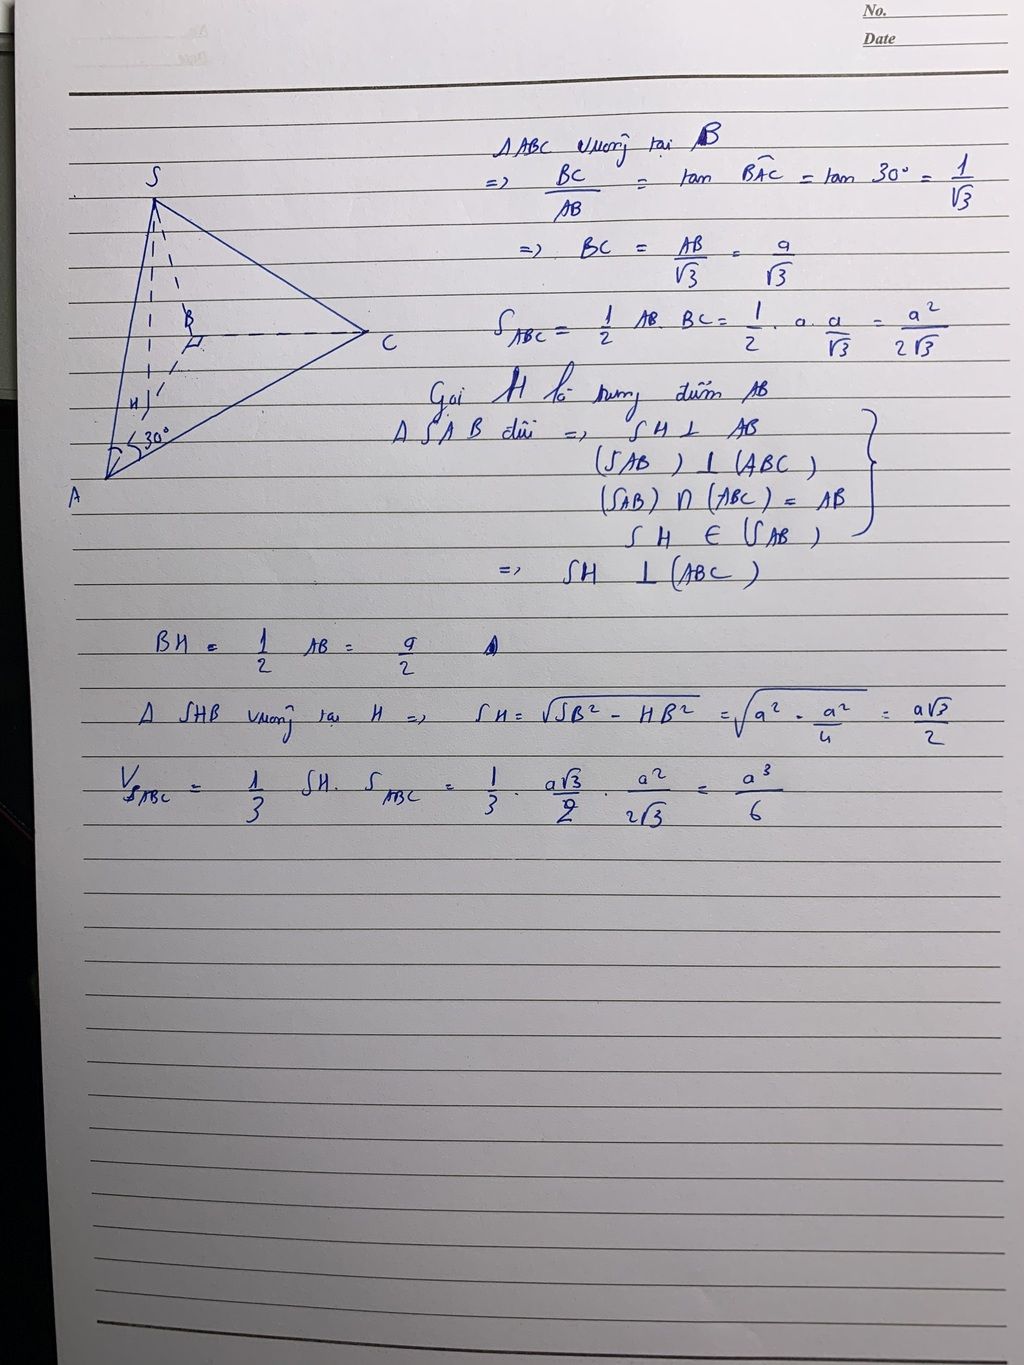 No.
Date
Δ ABC vuông tại B
=> BC/AB = tan BAC = tan 30° = 1/√3
=> BC = AB/√3 = a/√3
S_ABC = 1/2 AB. BC = 1/2 . a . a/√3 = a²/2√3
Gọi H là trung điểm AB
Δ SAB đều => SH ⊥ AB
(SAB) ⊥ (ABC)
(SAB) ∩ (ABC) = AB
SH ∈ (SAB)
=> SH ⊥ (ABC)
S
B
C
H
30°
A
BH = 1/2 AB = a/2
Δ SHB vuông tại H => SH = √SB² - HB² = √a² - a²/4 = a√3/2
V_SABC = 1/3 SH. S_ABC = 1/3 . a√3/2 . a²/2√3 = a³/6